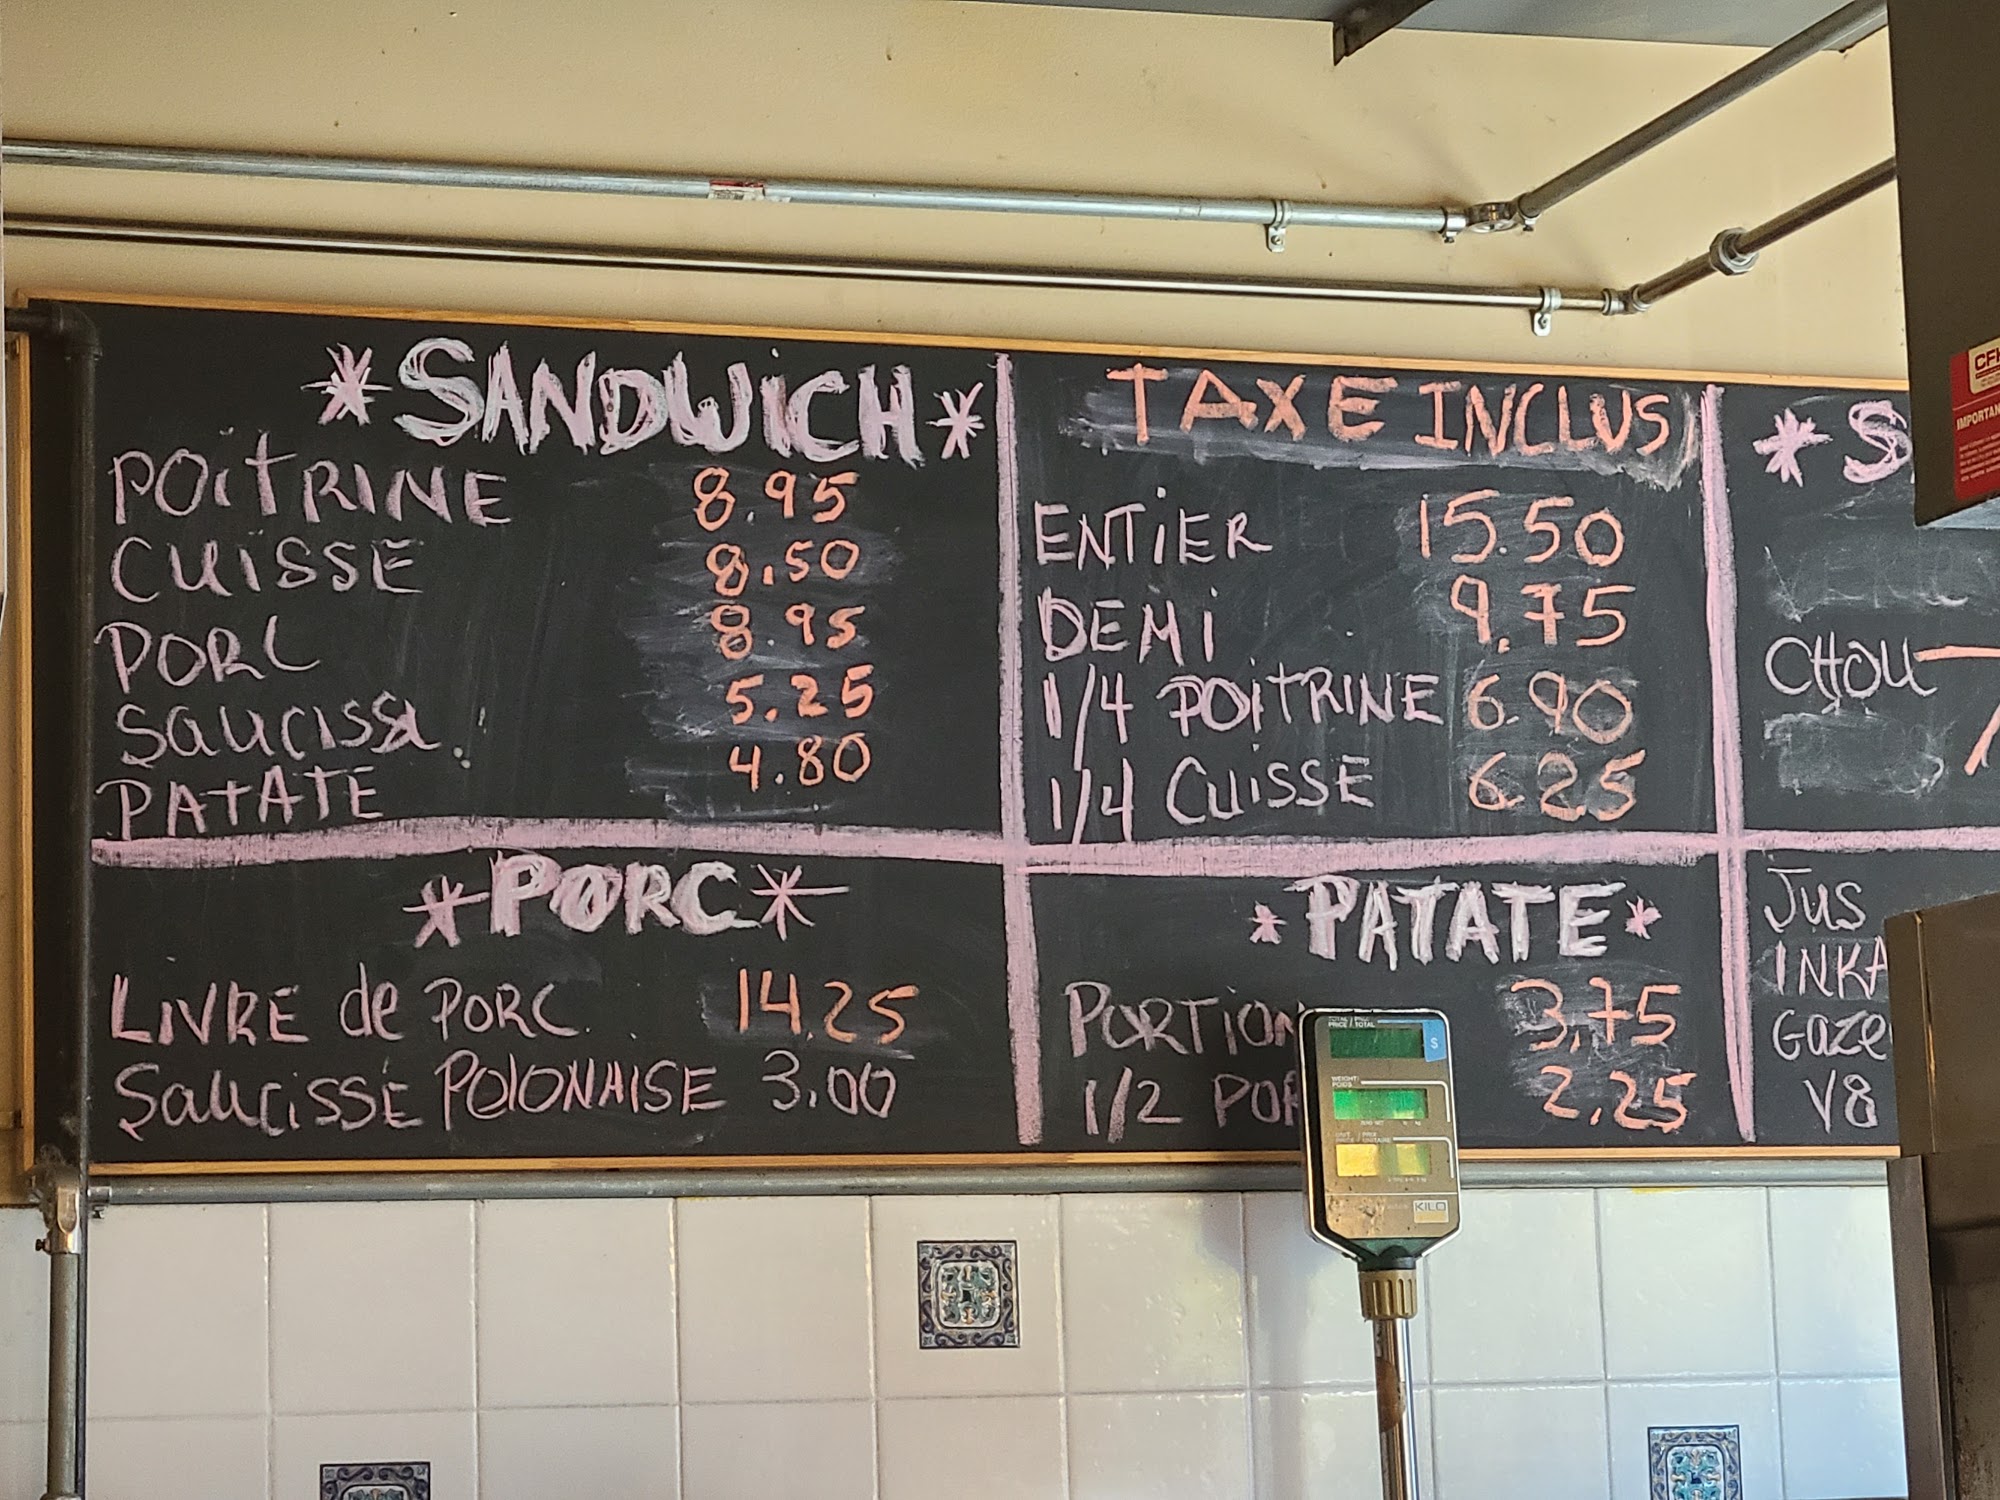 *SANDWICH*
POITRINE 8.95
CUISSE 8.50
PORC 8.95
SAUCISSE. 5.25
PATATE 4.80
TAXE INCLUS
ENTIER 15.50
DEMI 9.75
1/4 POITRINE 6.90
1/4 CUISSE 6.25
* S
CHOU 7
*PORC*
LIVRE de PORC. 14.25
SAUCISSE POLONAISE 3.00
*PATATE*
PORTION 3.75
1/2 POR 2.25
JUS
INKA
GAZE
V8
PRICE / TOTAL
WEIGHT:
POIDS
$
KILO
CFH
IMPORTAN